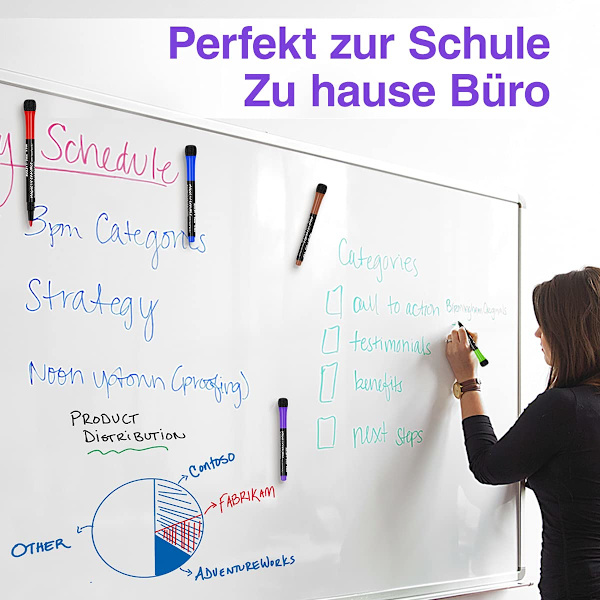 Perfekt zur Schule
Zu hause Büro
y Schedule
3pm Categories
Strategy
Noon uptown (proofing)
PRODUCT
DISTRIBUTION
CONTOSO
FABRIKAM
OTHER
ADVENTUREWORKS
Categories
call to action
testimonials
benefits
next steps